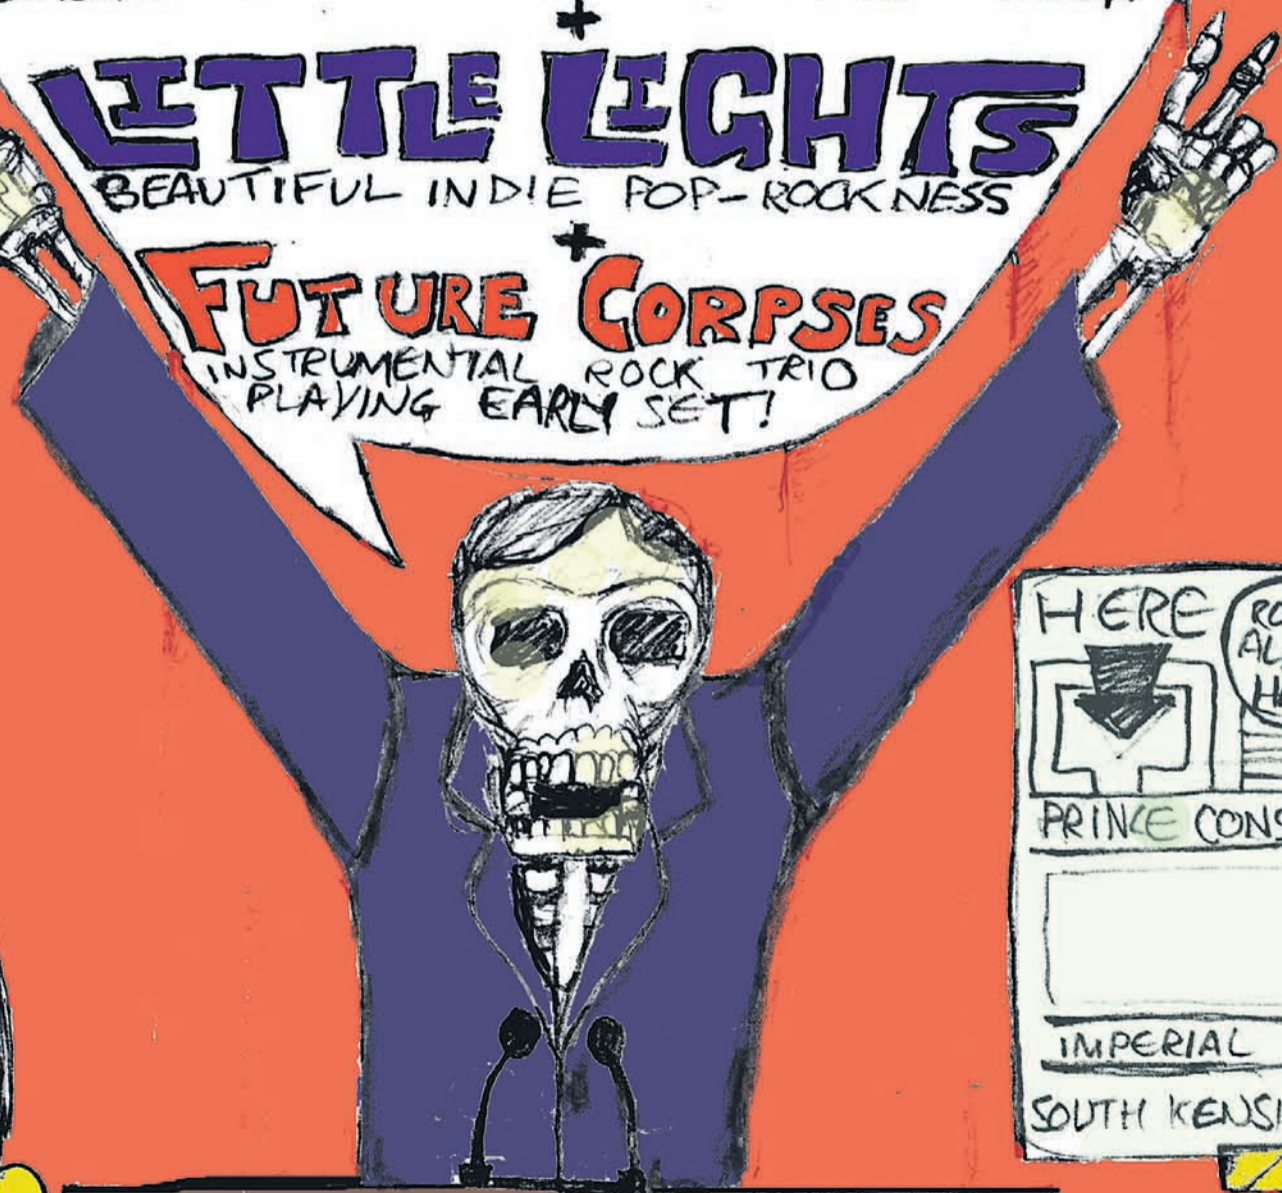 +
LITTLE LIGHTS
BEAUTIFUL INDIE POP-ROCKNESS
+
FUTURE CORPSES
INSTRUMENTAL ROCK TRIO
PLAYING EARLY SET!
HERE
PRINCE CONS
IMPERIAL
SOUTH KENSI